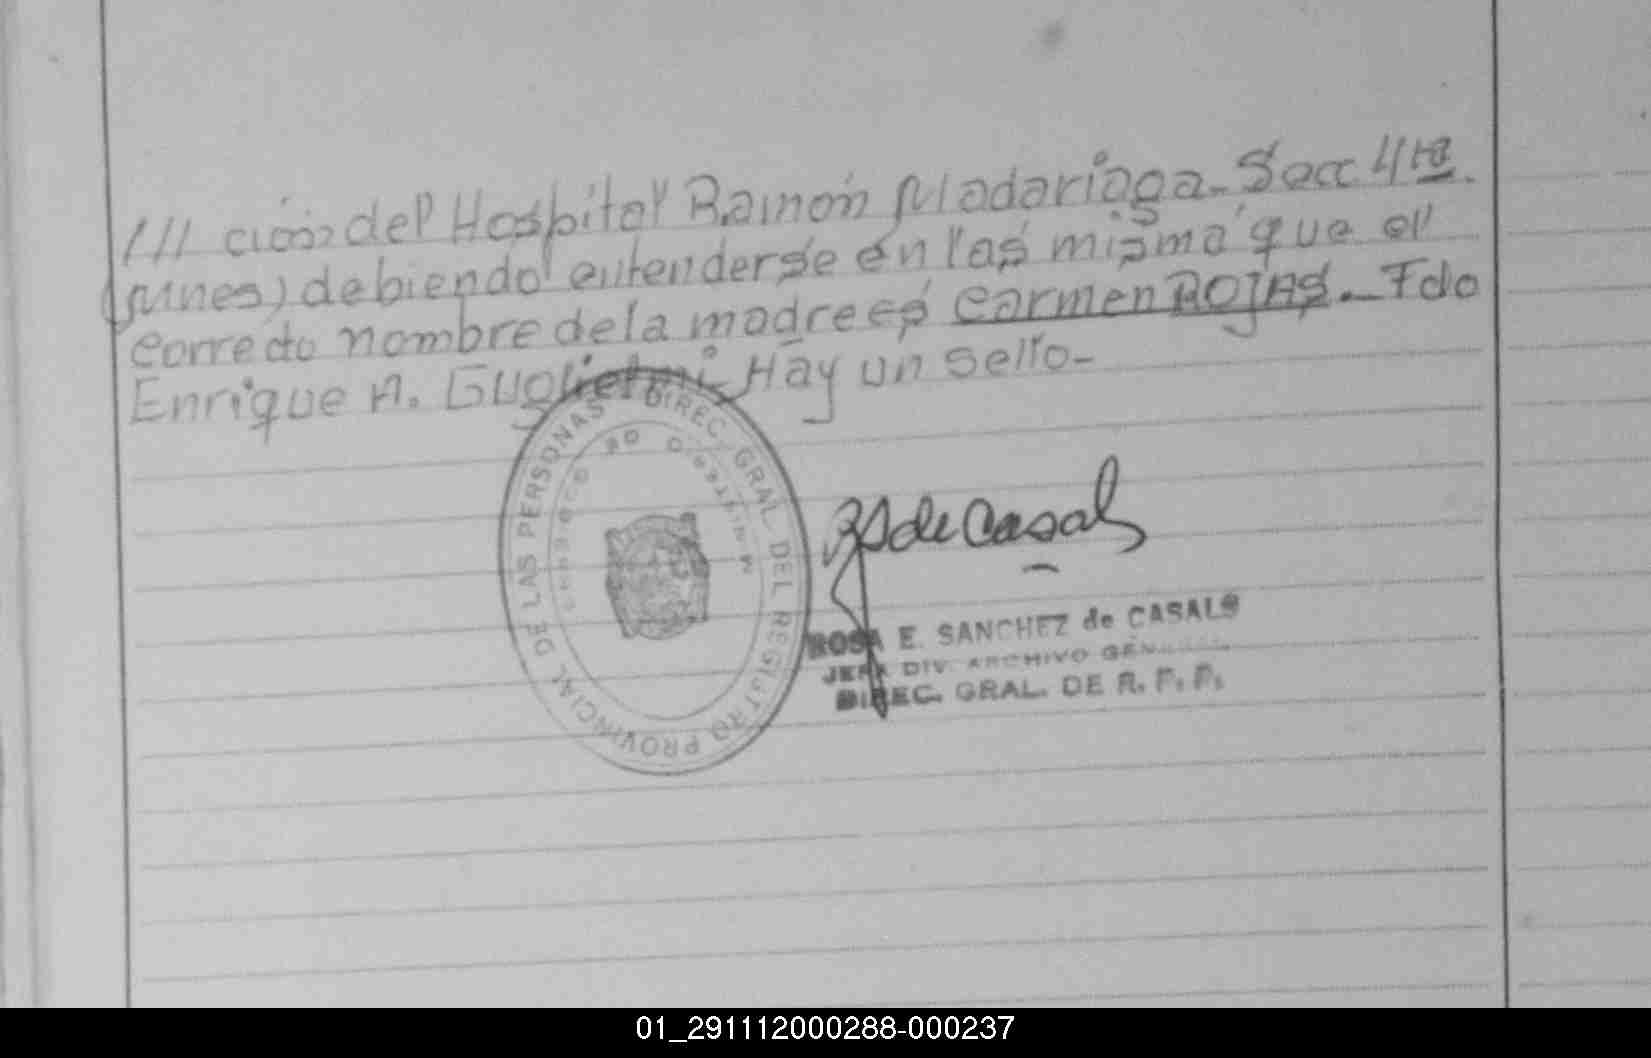 /// ción del Hospital Ramón Madariaga - Secc 4ta.
debiendo entenderse en las misma que el
correcto nombre de la madre es Carmen ROJAS.- Fdo
Enrique A. Guglielmi Hay un sello-
DIREC. GRAL. DEL REGISTRO PROVINCIAL DE LAS PERSONAS
MINISTERIO DE GOBIERNO
RS de Casals
ROSA E. SANCHEZ de CASALS
JEFA DIV. ARCHIVO GENERAL
DIREC. GRAL. DE R. P. P.
01_291112000288-000237